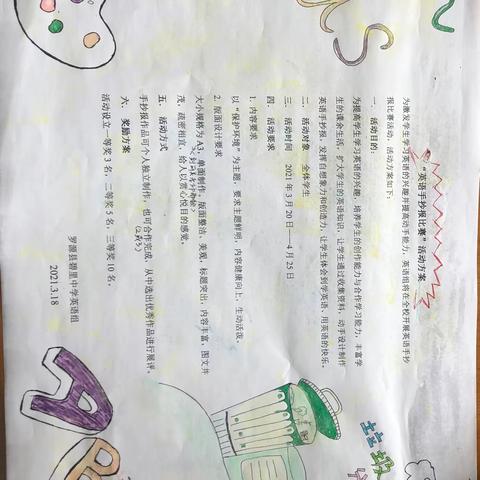 "英语手抄报比赛"活动方案
为激发学生学习英语的兴趣并提高动手能力，英语组将在全校开展英语手抄
报比赛活动，活动方案如下：
一、活动目的：
为提高学生学习英语的兴趣，培养学生的创作能力与合作学习能力，丰富学
生的课余生活，扩大学生的英语知识，让学生通过收集资料，动手设计制作
英语手抄报，发挥自想象力和创造力，让学生体会到学英语，用英语的快乐。
二、活动对象 全体学生
三、活动时间 2021年3月20日——4月25日
四、活动要求
1.内容要求
以"保护环境"为主题，要求主题鲜明，内容健康向上，生动活泼。
2.版面设计要求
大小规格为A3，单面制作。版面整洁、美观，标题突出，内容丰富，图文并
茂，疏密相直，给人以赏心悦目的感觉。
五、活动方式
手抄报作品可个人独立制作，也可合作完成，从中选出优秀作品进行展评。
六、奖励方案
活动设立一等奖3名，二等奖5名，三等奖10名。
罗源县碧里中学英语组
2021.3.18
垃圾